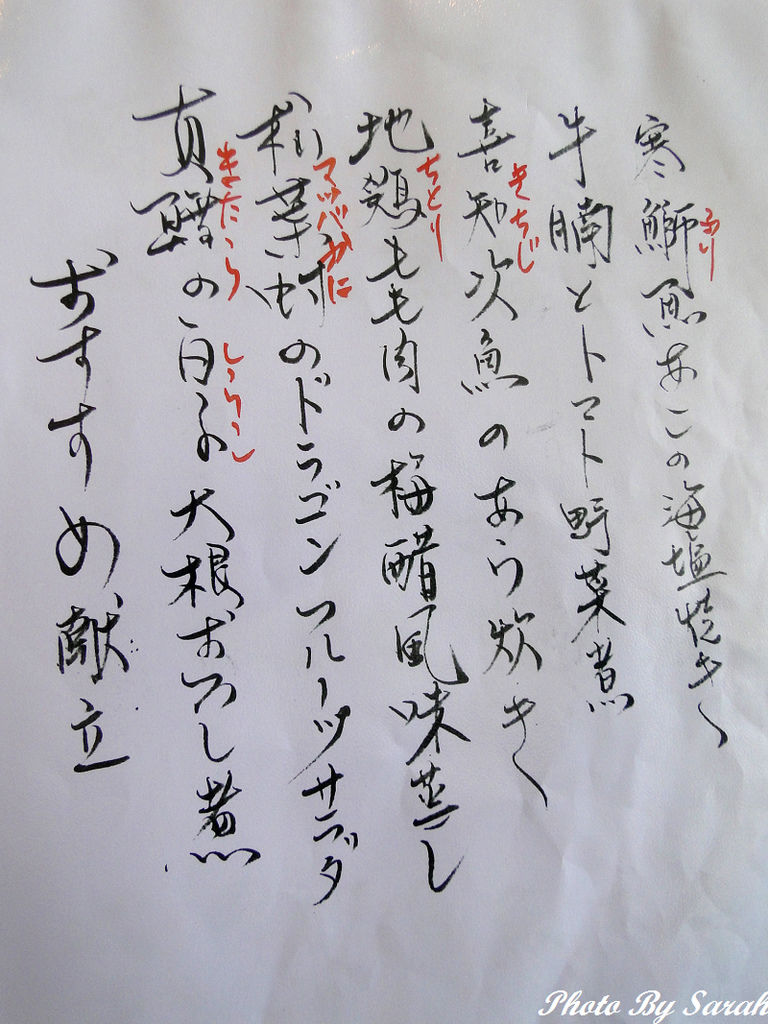 寒鰤魚あこの海塩焼き
ふり
牛腩とトマト野菜煮
喜知次魚のあら炊き
きちじ
地鶏もも肉の梅醋風味蒸し
ちとり
松葉蟹のドラゴンフルーツサラダ
マツバかに
真鱈の白子大根おろし煮
またら
しらこ
おすすめ献立
Photo By Sarah